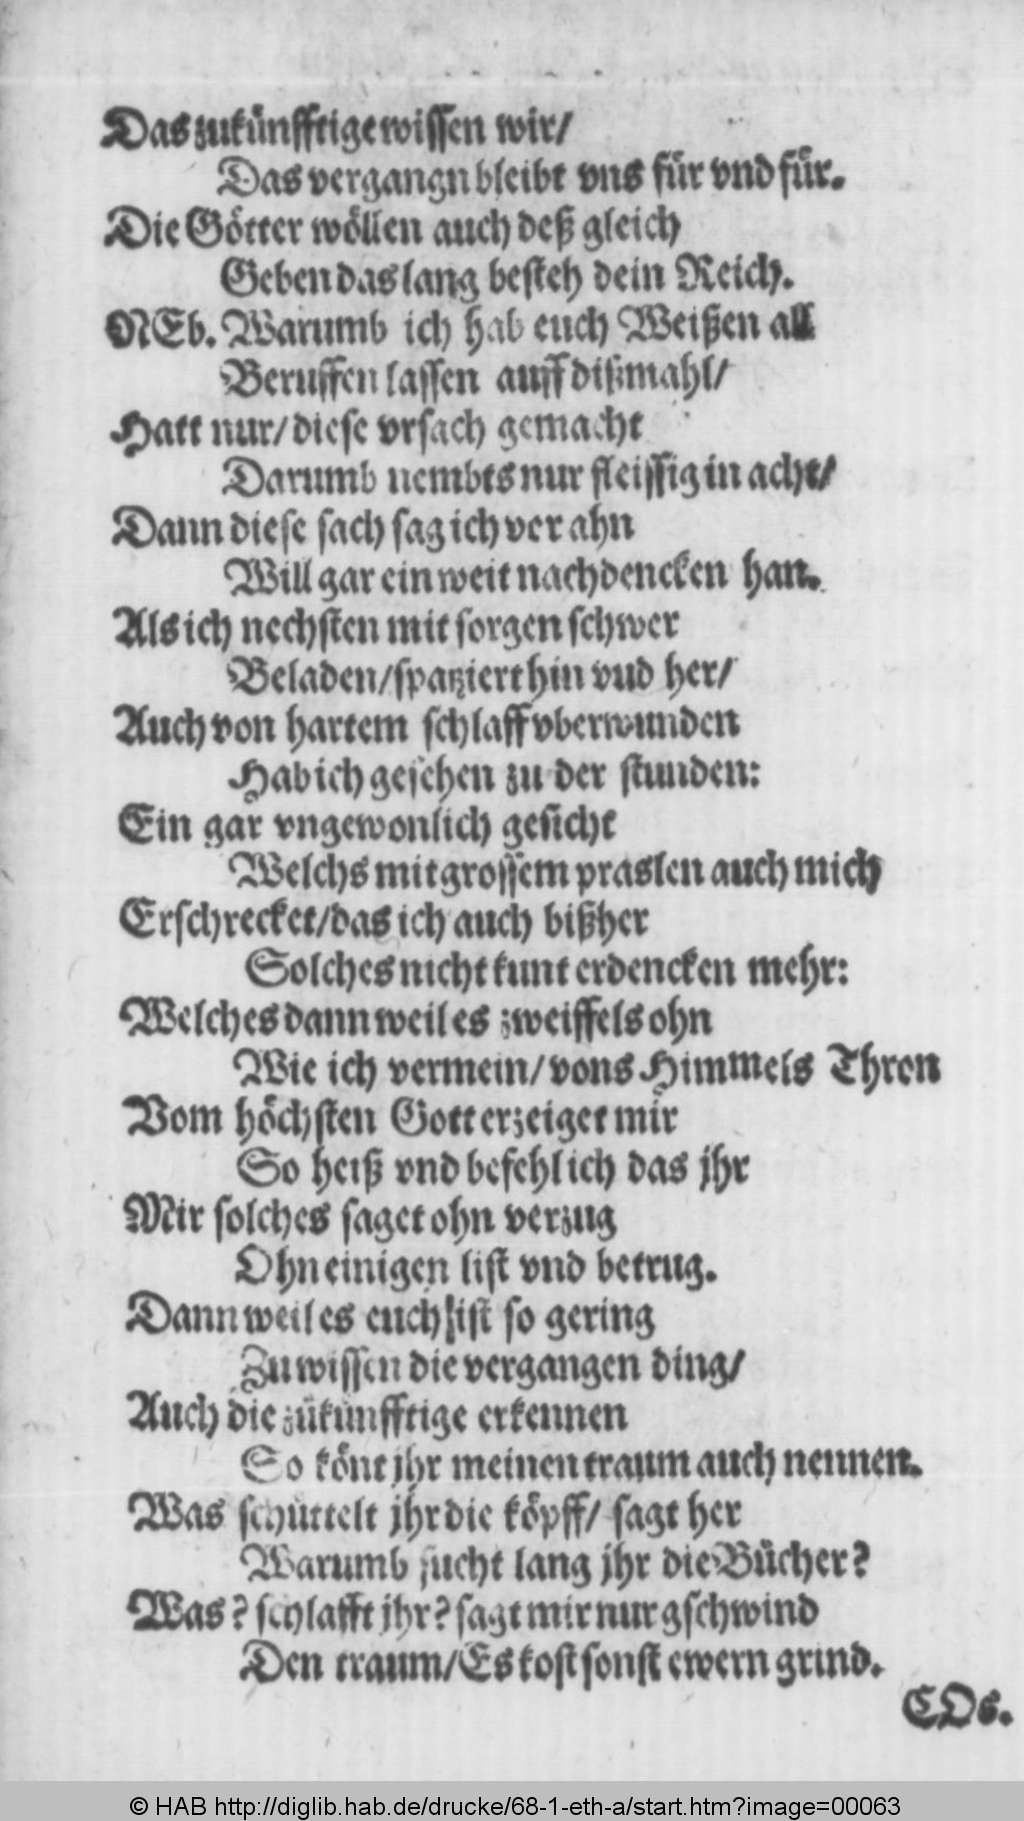 Das zukünfftige wissen wir/
Das vergangn bleibt vns für vnd für.
Die Götter wöllen auch deß gleich
Geben das lang besteh dein Reich.
NEb. Warumb ich hab euch Weißen all
Beruffen lassen auff dißmahl/
Hatt nur/ diese vrsach gemacht
Darumb nembts nur fleissig in acht/
Dann diese sach sag ich ver ahn
Will gar ein weit nachdencken han.
Als ich nechsten mit sorgen schwer
Beladen/ spatziert hin vud her/
Auch von hartem schlaff vberwunden
Hab ich gesehen zu der stunden:
Ein gar vngewonlich gesicht
Welchs mit grossem praslen auch mich
Erschrecket/ das ich auch bißher
Solches nicht kunt erdencken mehr:
Welches dann weil es zweiffels ohn
Wie ich vermein/ vons Himmels Thron
Vom höchsten Gott erzeiget mir
So heiß vnd befehl ich das jhr
Mir solches saget ohn verzug
Ohn einigen list vnd betrug.
Dann weil es euch ist so gering
Zu wissen die vergangen ding/
Auch die zükunfftige erkennen
So könt jhr meinen traum auch nennen.
Was schüttelt jhr die köpff/ sagt her
Warumb sucht lang jhr die Bücher?
Was? schlafft jhr? sagt mir nur gschwind
Den traum/ Es kost sonst ewern grind.
COs.
© HAB http://diglib.hab.de/drucke/68-1-eth-a/start.htm?image=00063